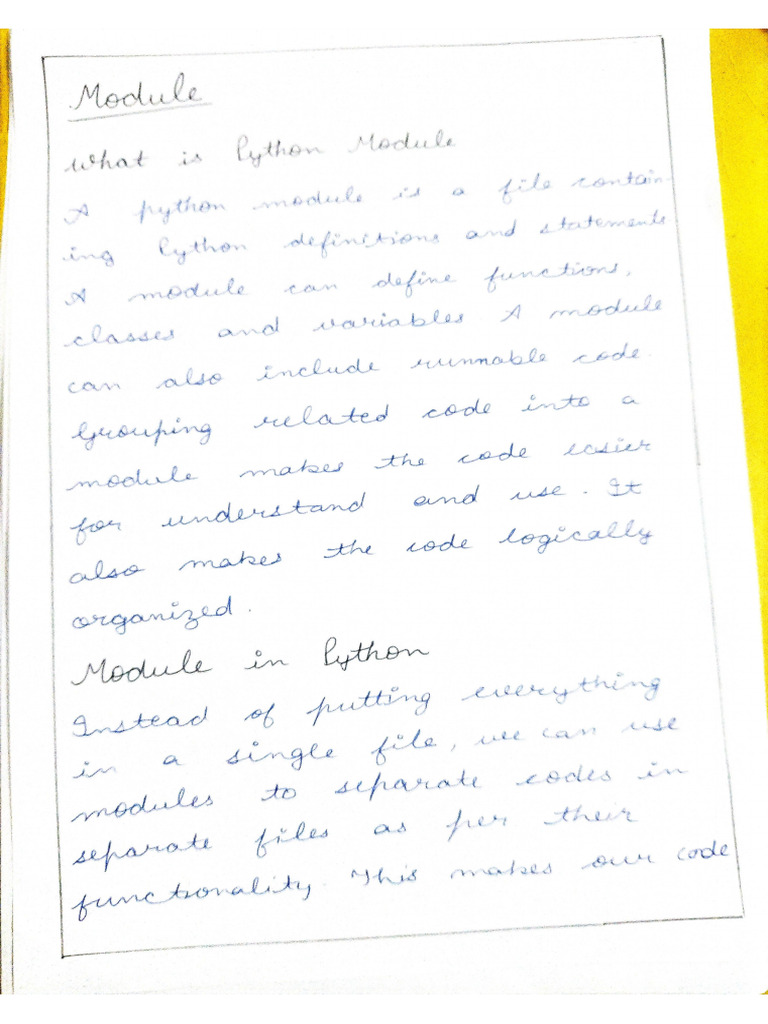 Module
What is Python Module
A python module is a file contain-
ing Python definitions and statements
A module can define functions,
classes and variables. A module
can also include runnable code.
Grouping related code into a
module makes the code easier
for understand and use. It
also makes the code logically
organized.
Module in Python
Instead of putting everything
in a single file, we can use
modules to separate codes in
separate files as per their
functionality. This makes our code